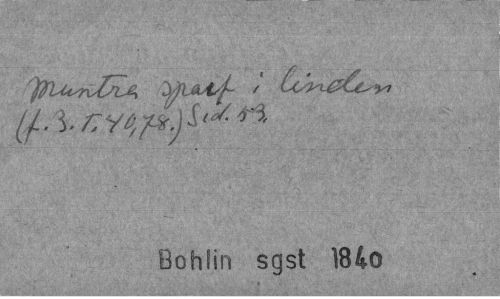 Muntra sparf i linden
(f. 3. T. 40, 78.) Sid. 53.
Bohlin sgst 1840